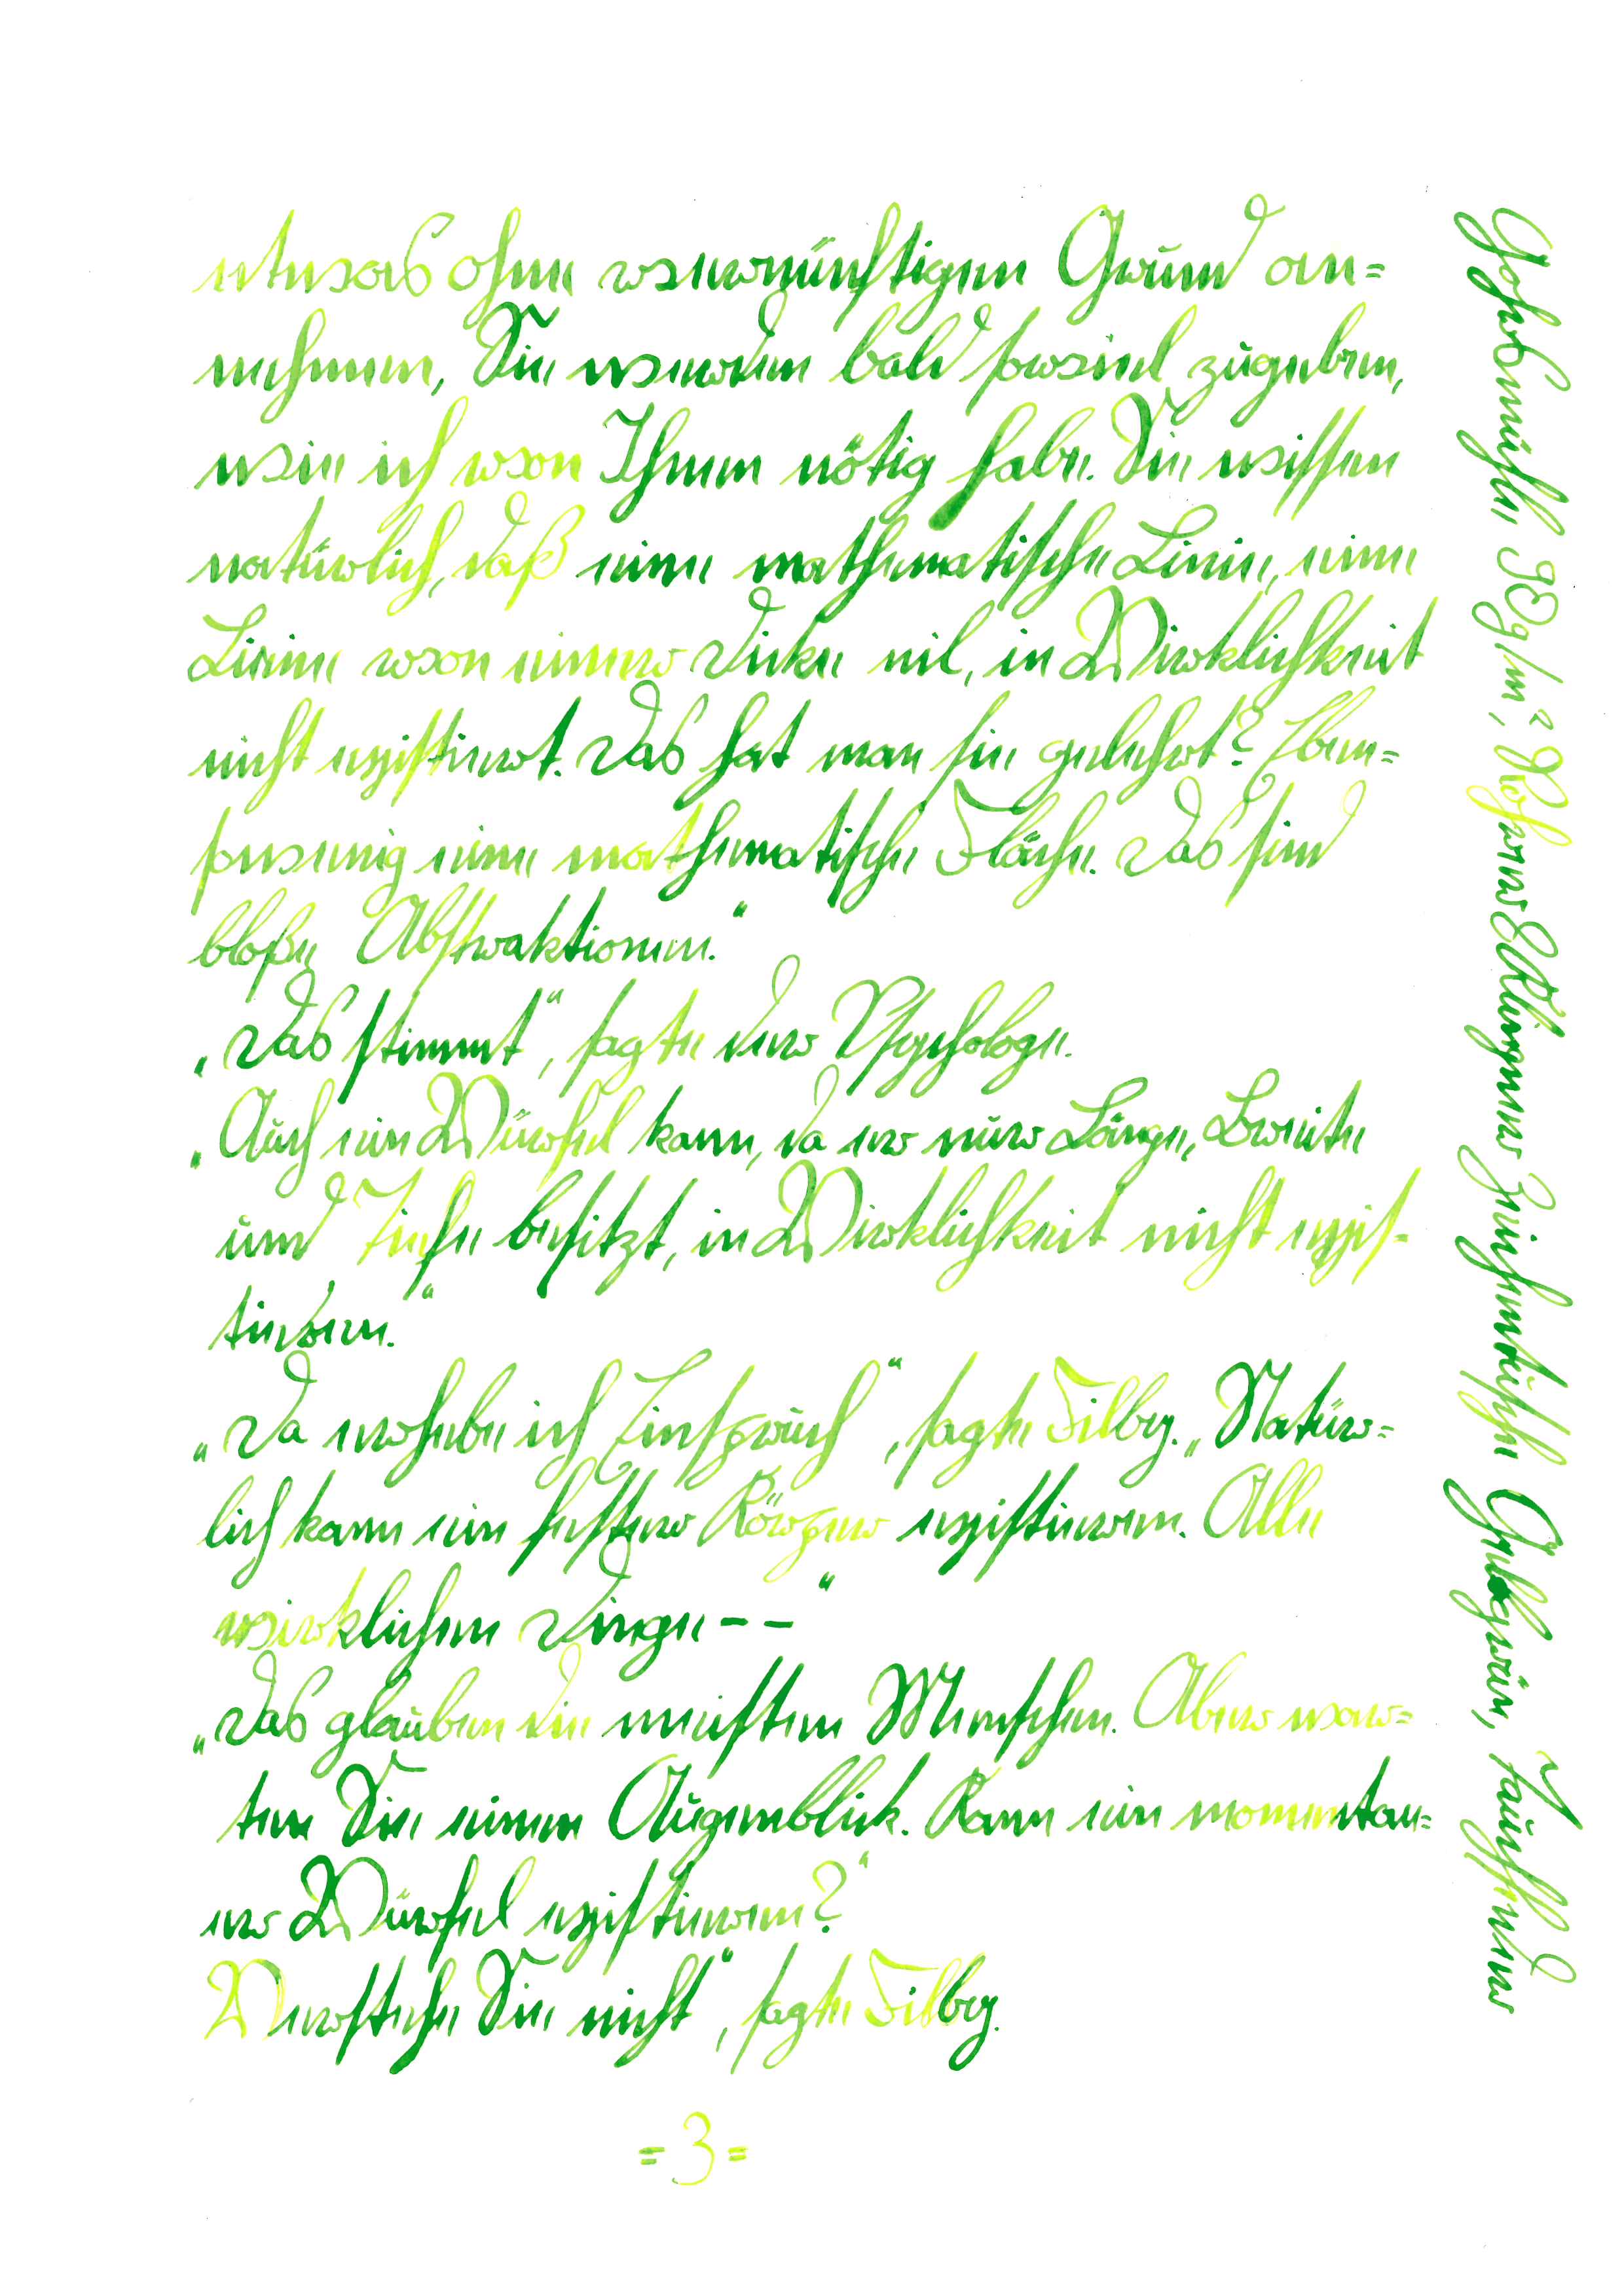 etwas ohne vernünftigen Grund an=
nehmen, Sie werden bald soviel zugeben,
wie ich von Ihnen nötig habe. Sie wissen
natürlich, daß eine mathematische Linie, eine
Linie von einer Dicke nil, in Wirklichkeit
nicht existiert. Das hat man sie gelehrt? Eben=
sowenig eine mathematische Fläche. Das sind
bloße Abstraktionen."
„Das stimmt", sagte der Psychologe.
„Auch ein Würfel kann, da er nur Länge, Breite
und Tiefe besitzt, in Wirklichkeit nicht exis-
tieren."
„Da erhebe ich Einspruch", sagte Filby. „Natür=
lich kann ein fester Körper existieren. Alle
wirklichen Dinge--"
„Das glauben die meisten Menschen. Aber war=
ten Sie einen Augenblick. Kann ein momentan=
er Würfel existieren?"
Verstehe Sie nicht", sagte Filby.
=3=
90g/m², Rohrer & Klingner Zeichentusche Gelbgrün,